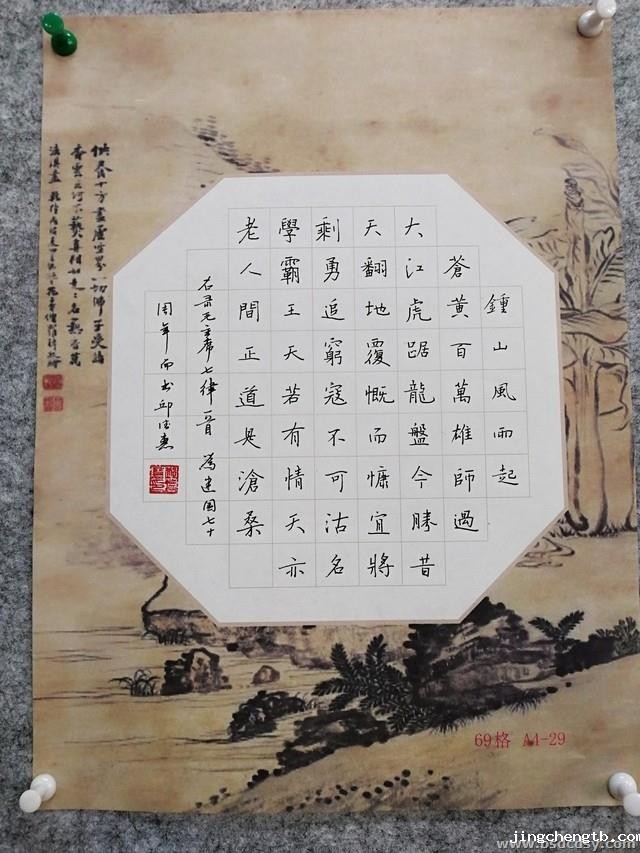 鍾山風雨起
蒼黃百萬雄師過
大江虎踞龍盤今勝昔
天翻地覆慨而慷宜將
剩勇追窮寇不可沽名
學霸王天若有情天亦
老人間正道是滄桑
右录毛主席七律一首 為建国七十
周年而书 邱
供養十方盡虛空界一切佛子受
69格 A4-29
jingchengtb.com